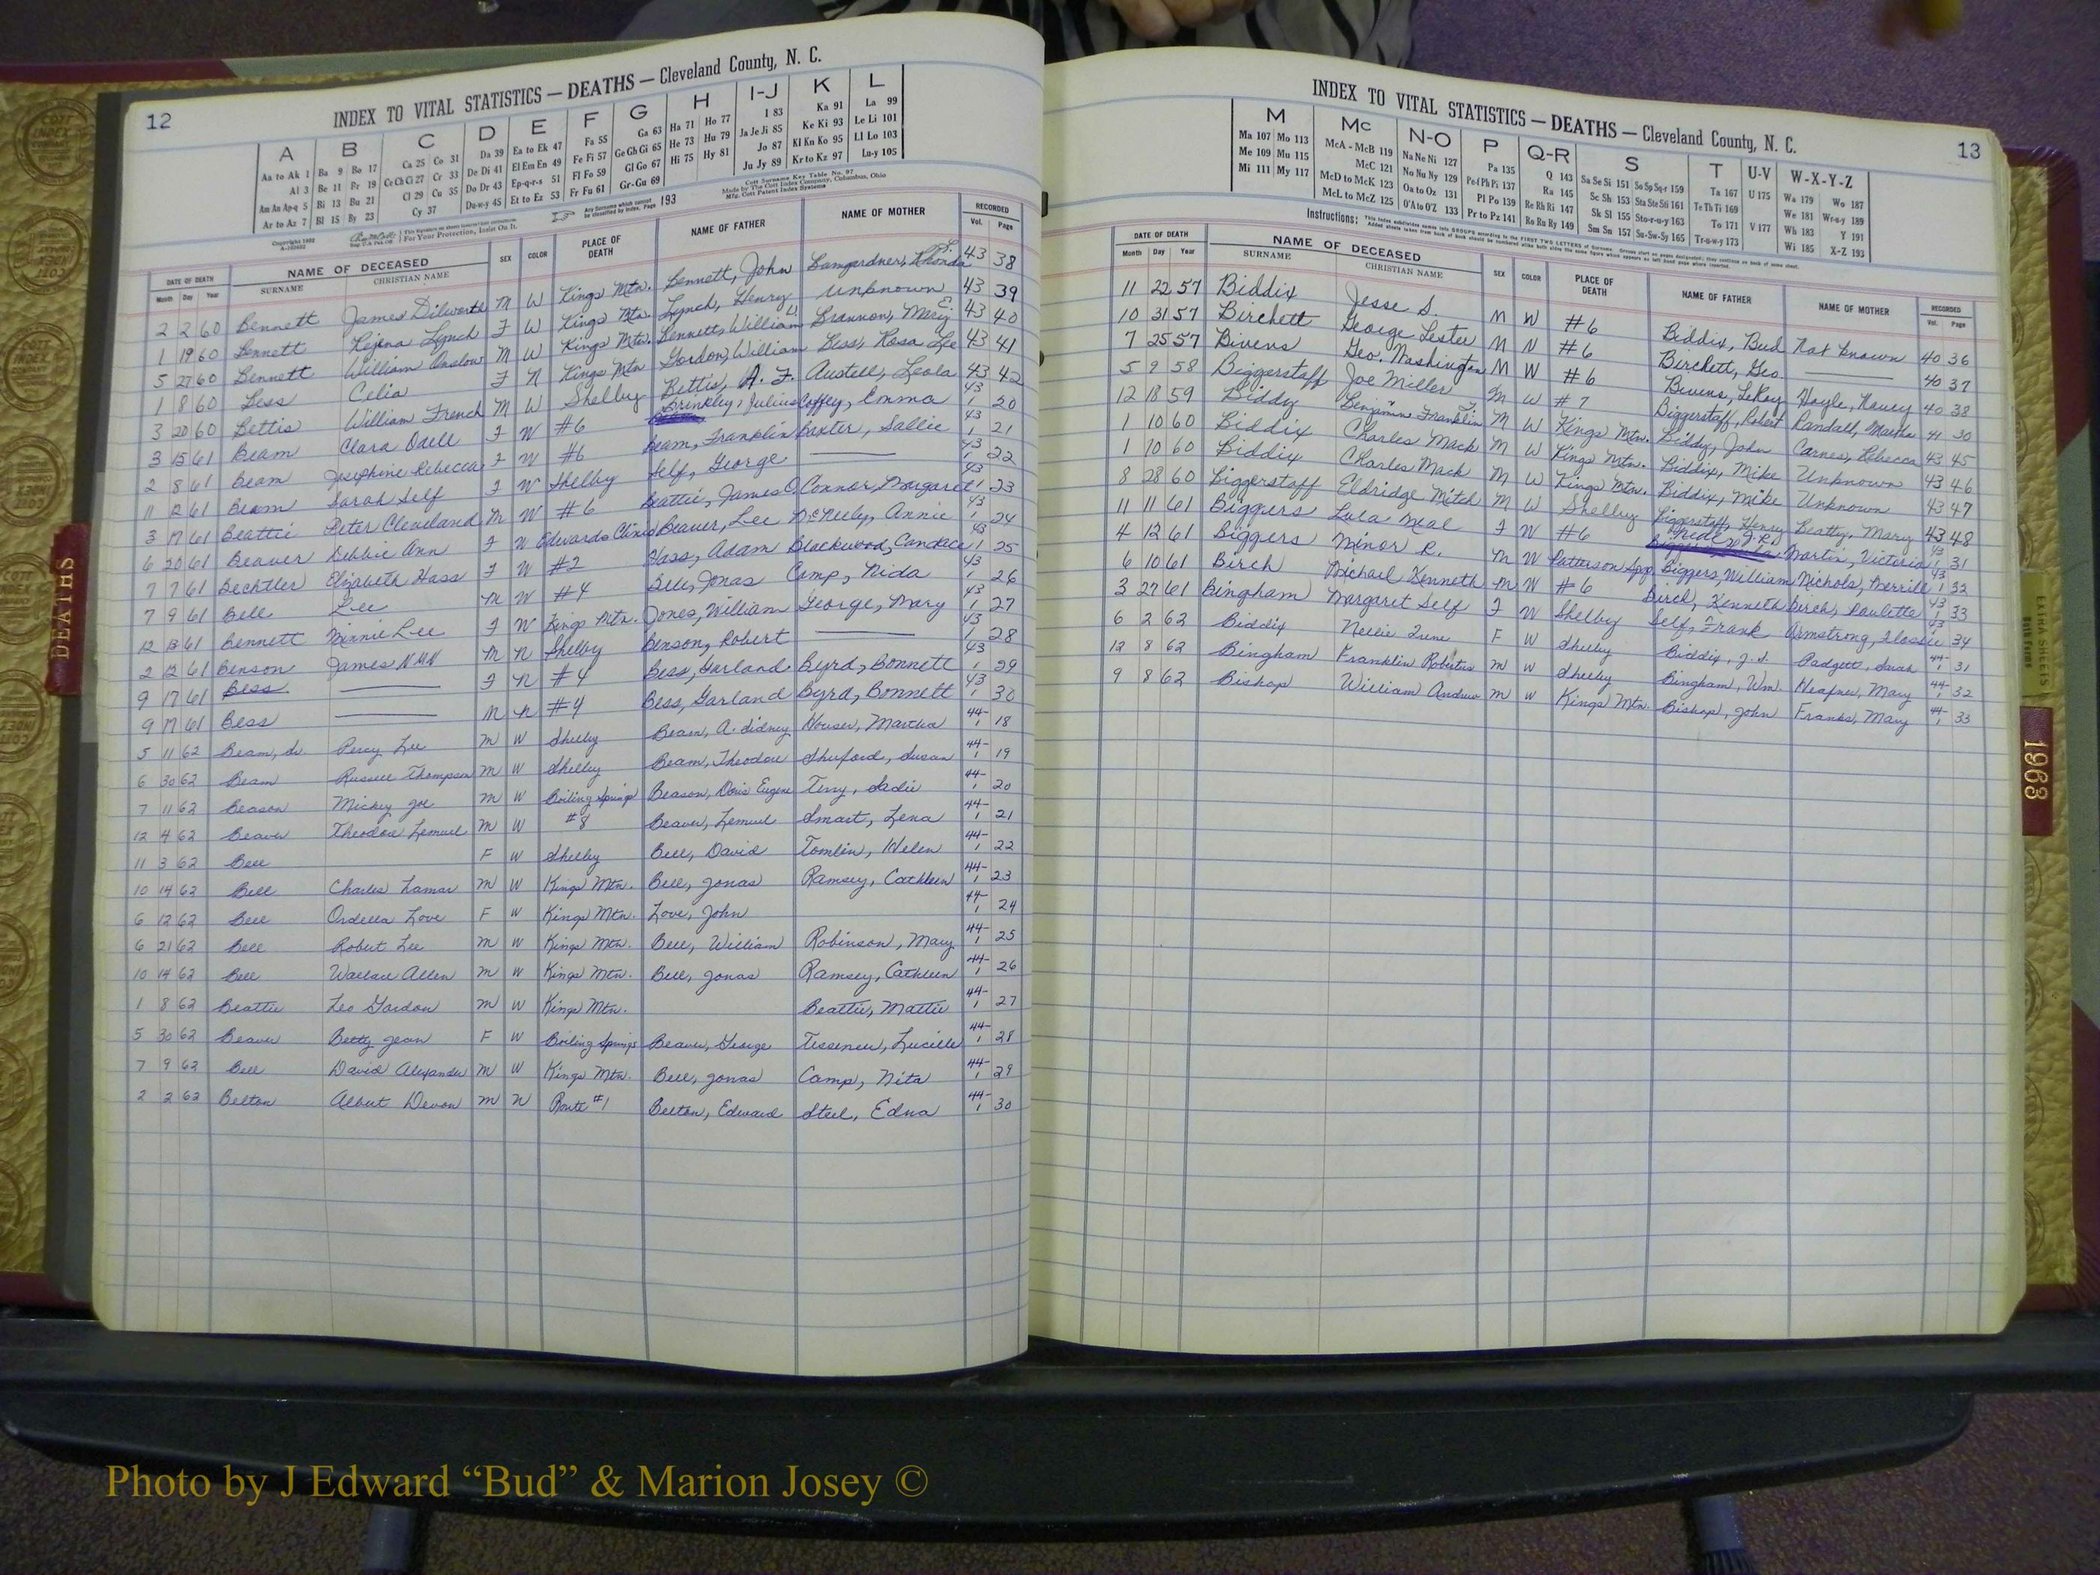 12
INDEX TO VITAL STATISTICS — DEATHS — Cleveland County, N. C.
A B C D E F G H I-J K L
Aa to Ak 1 Ba 9 Bo 17 Ca 25 Co 31 Da 39 Ea to Ek 47 Fa 55 Ga 63 Ha 71 Ho 77 I 83 Ka 91 La 99
Al 3 Be 11 Br 19 Ce Ch Ci 27 Cr 33 De Di 41 El Em En 49 Fe Fi 57 Ge Gh Gi 65 He 73 Hu 79 Ja Je Ji 85 Ke Ki 93 Le Li 101
Am An Ap-q 5 Bi 13 Bu 21 Cl 29 Cu 35 Do Dr 43 Ep-q-r-s 51 Fl Fo 59 Gl Go 67 Hi 75 Hy 81 Jo 87 Kl Kn Ko 95 Ll Lo 103
Ar to Az 7 Bl 15 By 23 Cy 37 Du-w-y 45 Et to Ez 53 Fr Fu 61 Gr-Gu 69 Ju Jy 89 Kr to Kz 97 Lu-y 105
Any Surname which cannot be classified by Index, Page 193
Cott Surname Key Table No. 97
Made by The Cott Index Company, Columbus, Ohio
Mfg. Cott Patent Index Systems
For Your Protection, Insist On It.
DATE OF DEATH NAME OF DECEASED SEX COLOR PLACE OF DEATH NAME OF FATHER NAME OF MOTHER RECORDED
Month Day Year SURNAME CHRISTIAN NAME Vol. Page
2 2 60 Bennett James Dilworth M W Kings Mtn. Bennett, John Bumgardner, Rhonda 43 38
1 19 60 Bennett Regina Lynch F W Kings Mtn. Lynch, Henry Unknown 43 39
5 27 60 Bennett William Onslow M W Kings Mtn. Bennett, William Brannon, Mary E. 43 40
1 8 60 Bess Celia F N Kings Mtn Gordon, William Bess, Rosa Lee 43 41
3 20 60 Bettis William French M W Shelby Bettis, A. F. Austell, Leola 43 42
3 15 61 Beam Clara Odell F W #6 Brinkley, Julius Coffey, Emma 43 1 20
2 8 61 Beam Josephine Rebecca F W #6 Beam, Franklin Baxter, Sallie 43 1 21
11 12 61 Beam Sarah Self F W Shelby Self, George 43 1 22
3 17 61 Beattie Peter Cleveland M W #6 Beattie, James O. Connor, Margaret 43 1 23
6 20 61 Beaver Debbie Ann F W Edwards Clinic Beaver, Lee McNeely, Annie 43 1 24
7 7 61 Bechtler Elizabeth Hass F W #2 Hass, Adam Blackwood, Candace 43 1 25
7 9 61 Bell Lee M W #4 Bell, Jonas Camp, Nida 43 1 26
12 13 61 Bennett Minnie Lee F W Kings Mtn. Jones, William George, Mary 43 1 27
2 12 61 Benson James NMN M N Shelby Benson, Robert 43 1 28
9 17 61 Bess F N #4 Bess, Garland Byrd, Bonnett 43 1 29
9 17 61 Bess M N #4 Bess, Garland Byrd, Bonnett 43 1 30
5 11 62 Beam, Sr Percy Lee M W Shelby Beam, A. Sidney Houser, Martha 44-1 18
6 30 62 Beam Russell Thompson M W Shelby Beam, Theodore Shuford, Susan 44-1 19
7 11 62 Beason Mickey Joe M W Boiling Springs Beason, Doris Eugene Terry, Sadie 44-1 20
12 4 62 Beaver Theodore Lemuel M W #8 Beaver, Lemuel Smart, Lena 44-1 21
11 3 62 Bell F W Shelby Bell, David Tomlin, Helen 44-1 22
10 14 62 Bell Charles Lamar M W Kings Mtn. Bell, Jonas Ramsey, Cathleen 44-1 23
6 12 62 Bell Ordella Love F W Kings Mtn. Love, John 44-1 24
6 21 62 Bell Robert Lee M W Kings Mtn. Bell, William Robinson, Mary 44-1 25
10 14 62 Bell Wallace Allen M W Kings Mtn. Bell, Jonas Ramsey, Cathleen 44-1 26
1 8 62 Beattie Leo Gordon M W Kings Mtn. Beattie, Mattie 44-1 27
5 30 62 Beaver Betty Jean F W Boiling Springs Beaver, George Tesseneer, Lucille 44-1 28
7 9 62 Bell David Alexander M W Kings Mtn. Bell, Jonas Camp, Nita 44-1 29
2 2 62 Belton Albert Devon M N Route #1 Belton, Edward Steel, Edna 44-1 30
13
INDEX TO VITAL STATISTICS — DEATHS — Cleveland County, N. C.
M Mc N-O P Q-R S T U-V W-X-Y-Z
Ma 107 Mo 113 McA - McB 119 Na Ne Ni 127 Pa 135 Q 143 Sa Se Si 151 So Sp Sq-r 159 Ta 167 U 175 Wa 179 Wo 187
Me 109 Mu 115 McC 121 No Nu Ny 129 Pe-f Ph Pi 137 Ra 145 Sc Sh 153 Sta Ste Sti 161 Te Th Ti 169 We 181 Wr-u-y 189
Mi 111 My 117 McD to McK 123 Oa to Oz 131 Pl Po 139 Re Rh Ri 147 Sk Sl 155 Sto-r-u-y 163 To 171 V 177 Wh 183 Y 191
McL to McZ 125 O'A to O'Z 133 Pr to Pz 141 Ro Ru Ry 149 Sm Sn 157 Su-Sw-Sy 165 Tr-u-w-y 173 Wi 185 X-Z 193
Instructions:
DATE OF DEATH NAME OF DECEASED SEX COLOR PLACE OF DEATH NAME OF FATHER NAME OF MOTHER RECORDED
Month Day Year SURNAME CHRISTIAN NAME Vol. Page
11 22 57 Biddix Jesse S. M W #6 Biddix, Bud Not known 40 36
10 31 57 Birchett George Lester M N #6 Birchett, Geo. 40 37
7 25 57 Bivens Geo. Washington M W #6 Bivens, LeRoy Hoyle, Nancy 40 38
5 9 58 Biggerstaff Joe Miller M W #7 Biggerstaff, Robert Randall, Martha 41 30
12 18 59 Biddy Benjamin Franklin M W Kings Mtn. Biddy, John Carnes, Rebecca 43 45
1 10 60 Biddix Charles Mack M W Kings Mtn. Biddix, Mike Unknown 43 46
1 10 60 Biddix Charles Mack M W Kings Mtn. Biddix, Mike Unknown 43 47
8 28 60 Biggerstaff Eldridge Mitch M W Shelby Biggerstaff, Henry Beatty, Mary 43 48
11 11 61 Biggers Lula Mae F W #6 Martin, Victoria 43 1 31
4 12 61 Biggers Minor R. M W Patterson Spgs. Biggers, William Nichols, Merrill 43 1 32
6 10 61 Birch Michael Kenneth M W #6 Birch, Kenneth Birch, Paulette 43 1 33
3 27 61 Bingham Margaret Self F W Shelby Self, Frank Armstrong, Flossie 43 1 34
6 2 62 Biddix Nellie June F W Shelby Biddix, J. S. Padgett, Sarah 44-1 31
12 8 62 Bingham Franklin Robertus M W Shelby Bingham, Wm. Heafner, Mary 44-1 32
9 8 62 Bishop William Andrew M W Kings Mtn. Bishop, John Franks, Mary 44-1 33
DEATHS
EXTRA SHEETS
1963
Photo by J Edward “Bud” & Marion Josey ©